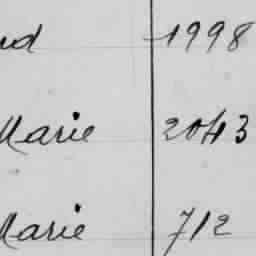 nd 1998
Marie 2043
Marie 712